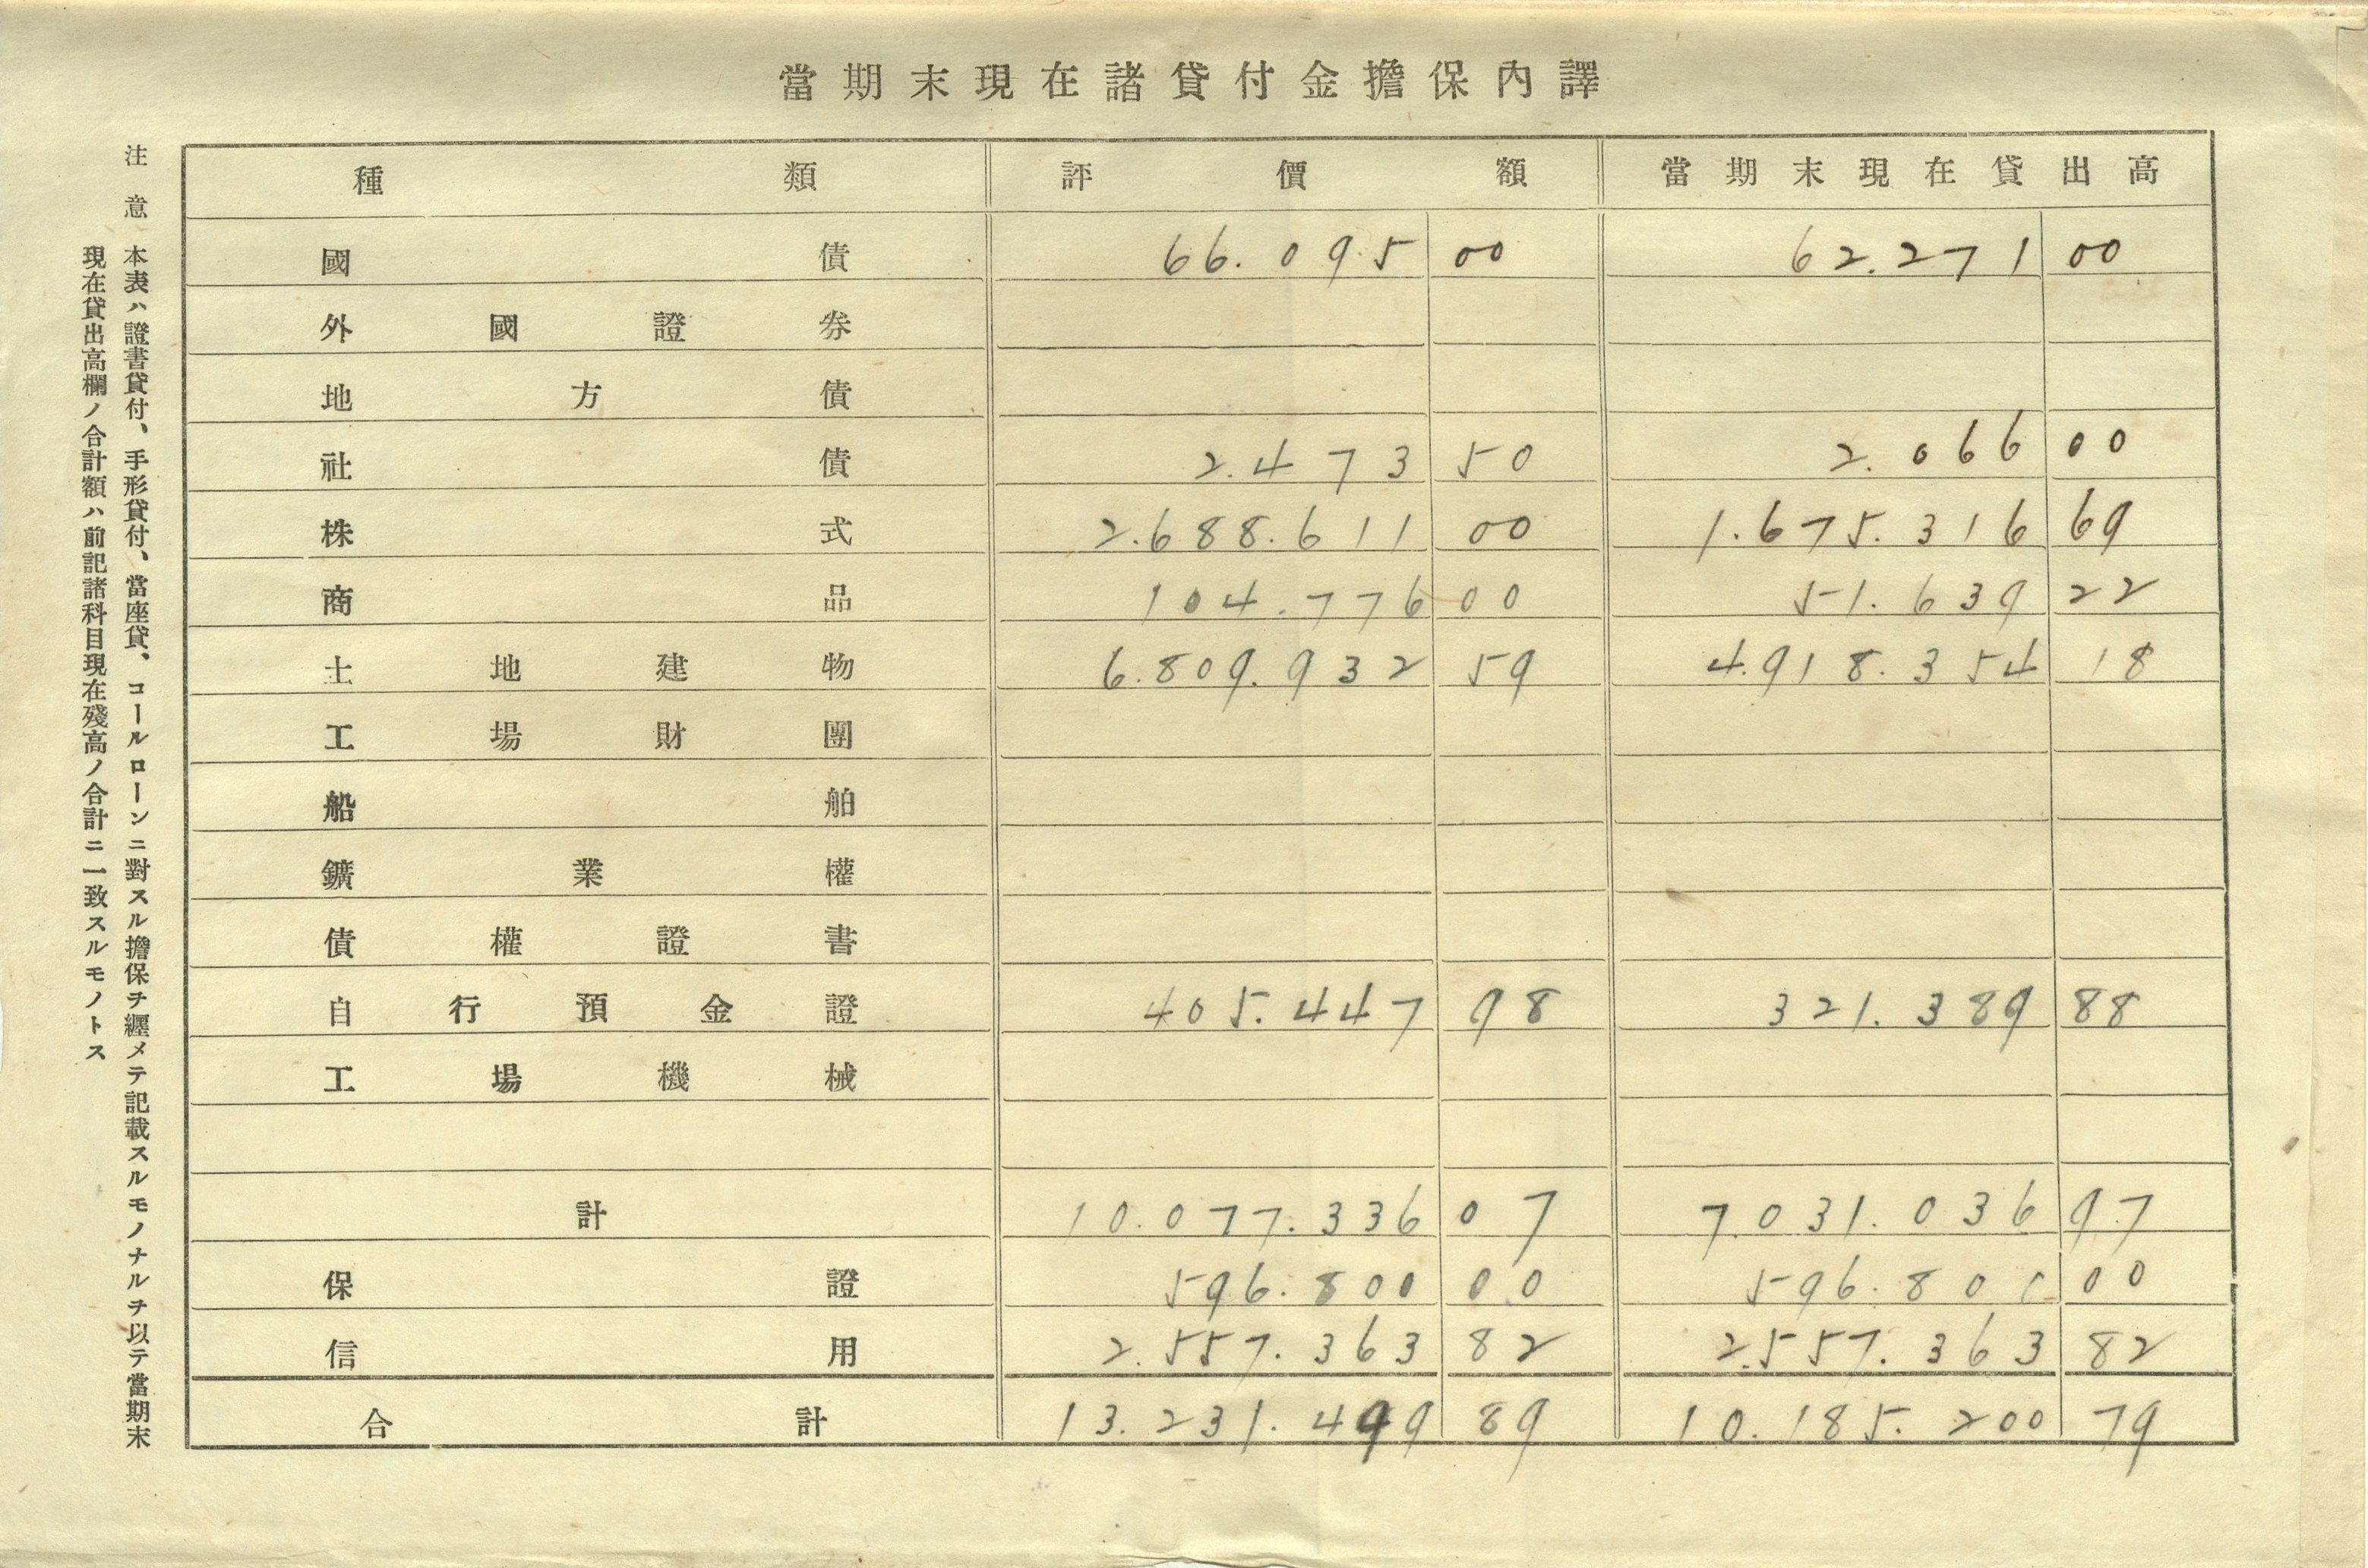 當期末現在諸貸付金擔保內譯
種類 評價額 當期末現在貸出高
國債 66.095 00 62.271 00
外國證券
地方債
社債 2.473 50 2.066 00
株式 2.688.611 00 1.675.316 69
商品 104.776 00 51.639 22
土地建物 6.809.932 59 4.918.354 18
工場財團
船舶
鑛業權
債權證書
自行預金證 405.447 98 321.389 88
工場機械
計 10.077.336 07 7.031.036 97
保證 596.800 00 596.800 00
信用 2.557.363 82 2.557.363 82
合計 13.231.499 89 10.185.200 79
注意 本表ハ證書貸付、手形貸付、當座貸、コールローンニ對スル擔保ヲ纒メテ記載スルモノナルヲ以テ當期末
現在貸出高欄ノ合計額ハ前記諸科目現在殘高ノ合計ニ一致スルモノトス